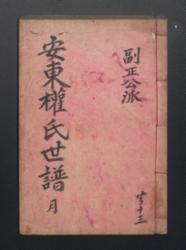 副正公派
安東權氏世譜
月